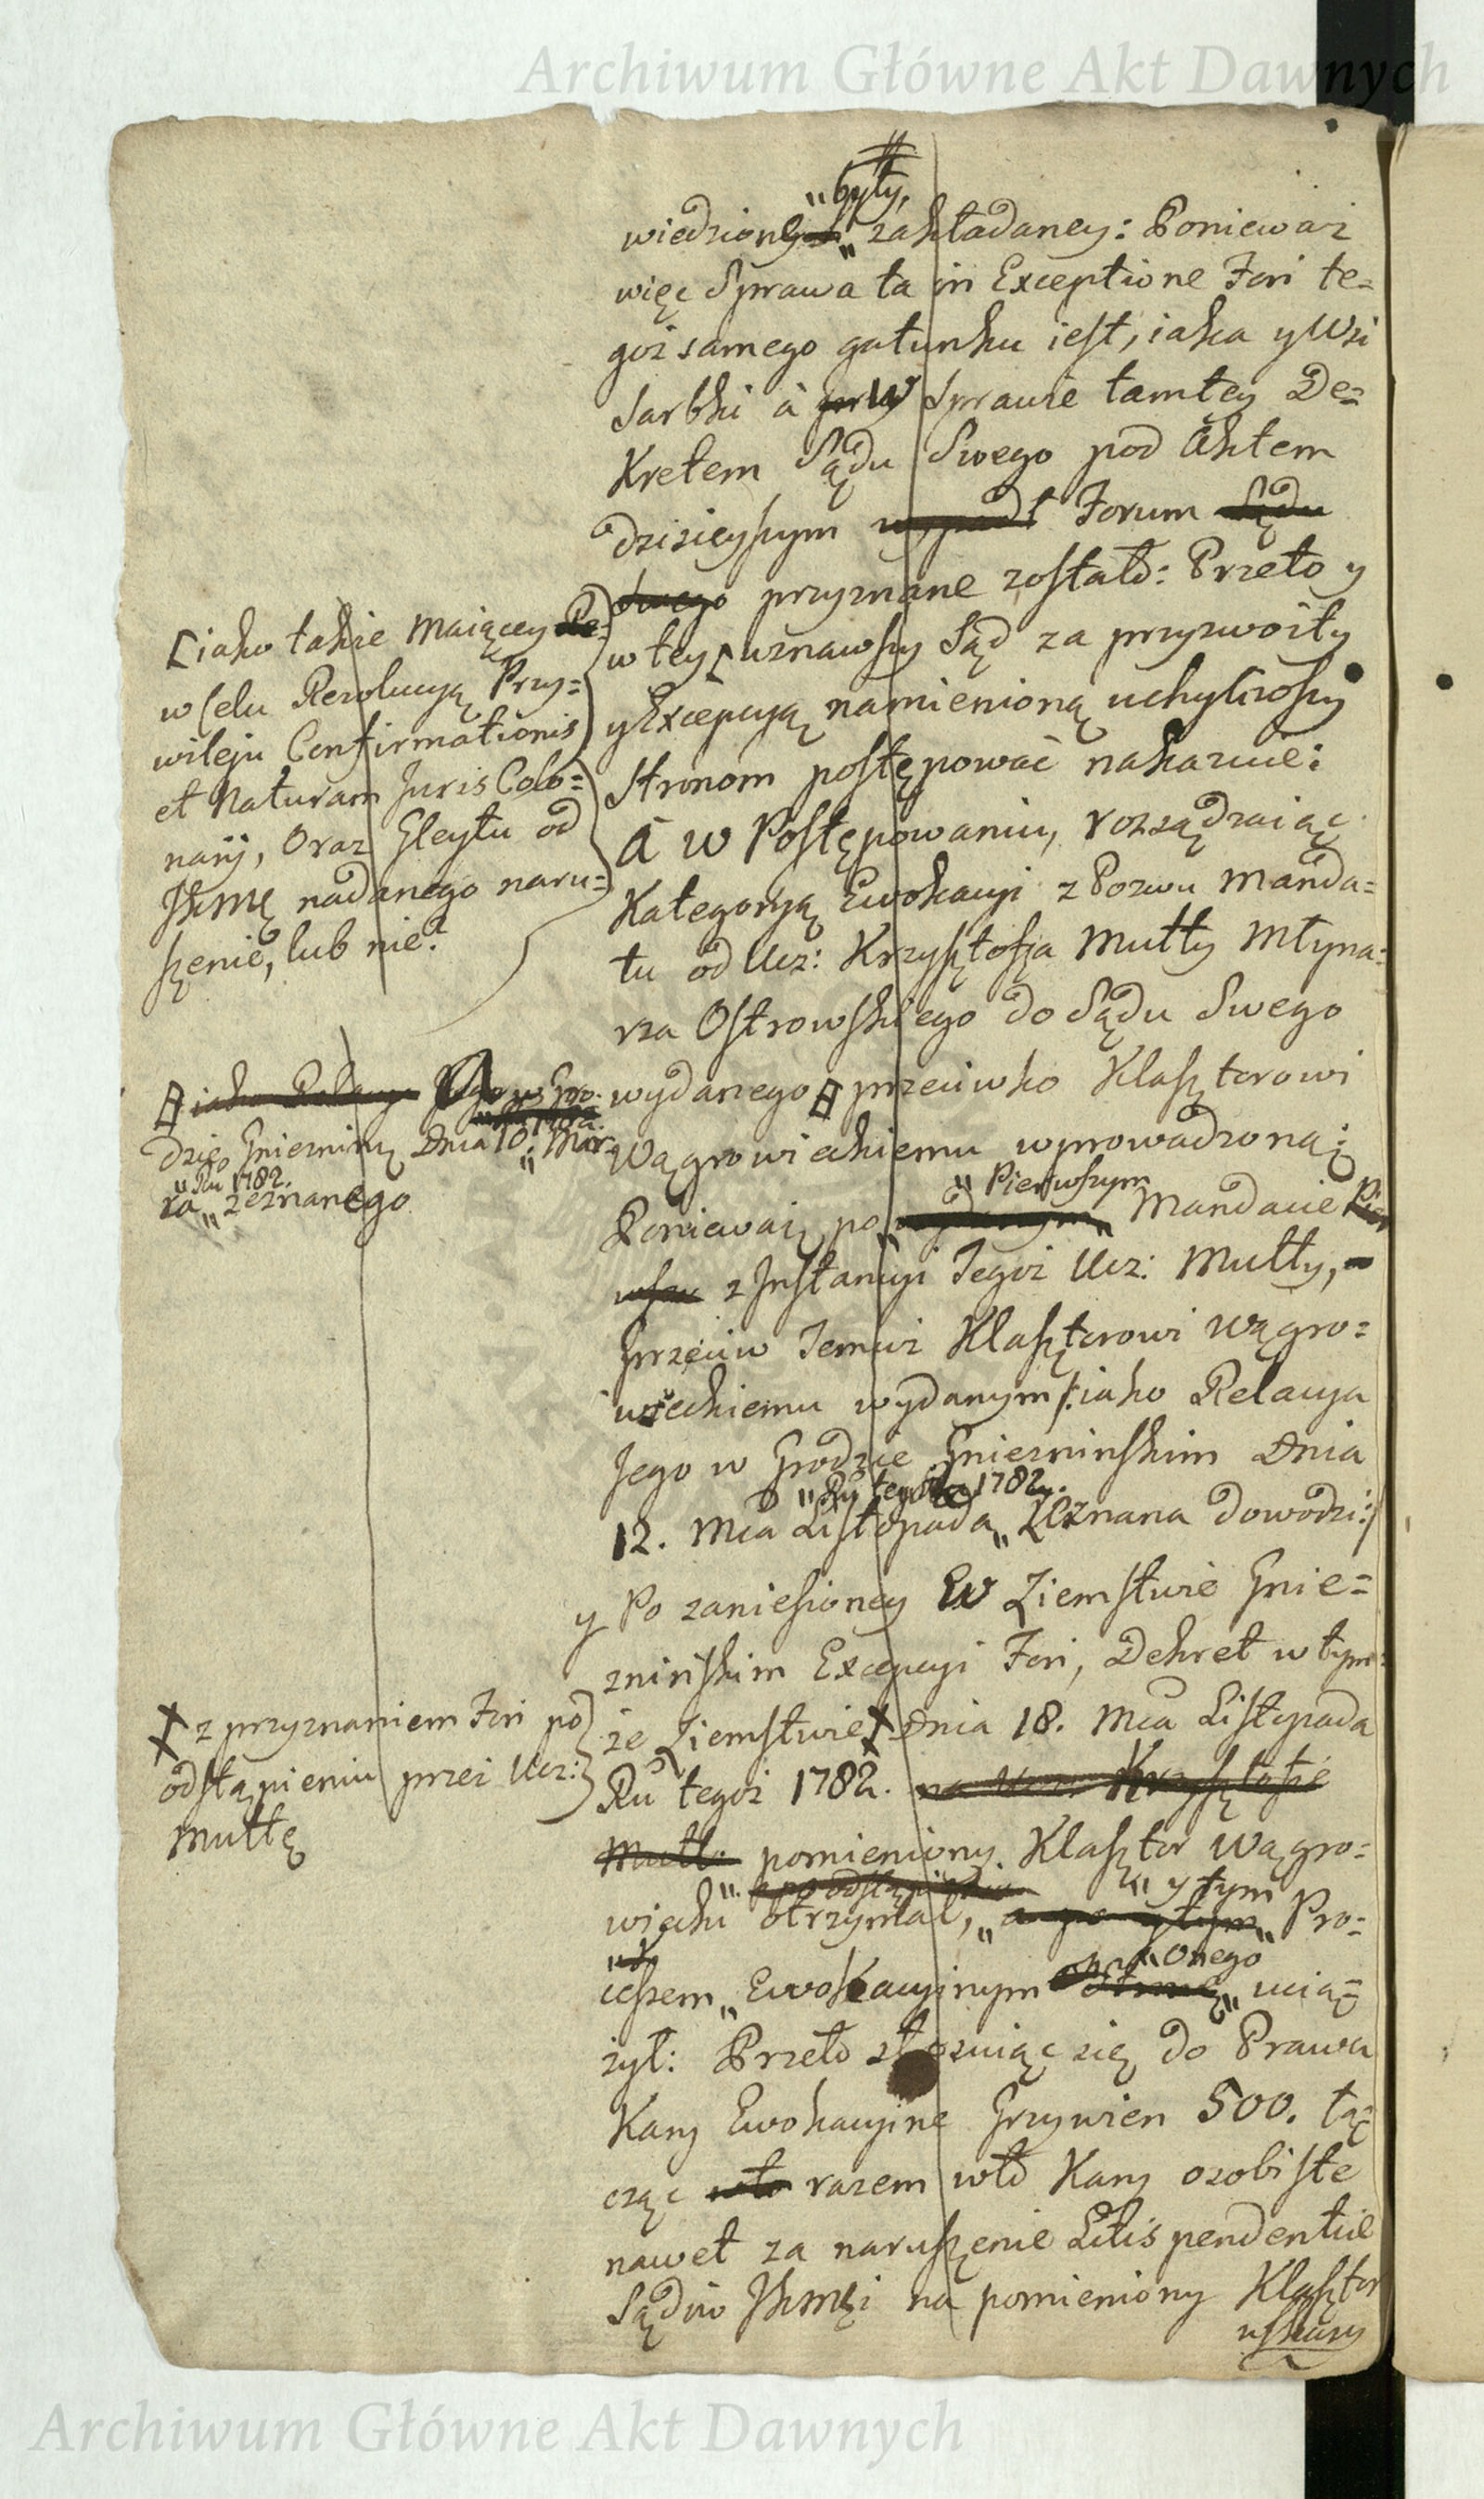 Archiwum Główne Akt Dawnych
"były,
wiedziony " zakładaney: Ponieważ
więc Sprawa ta in Exceptione Fori te=
goż samego gatunku iest, iaka y Wsi
Sarbki à w Sprawie tamtey De=
Kretem Sądu Swego pod Aktem
dzisieyszym wypadł Forum Sądu
Swego przyznane zostało: Przeto y
w tey uznawszy Sąd za przyzwoity
y Excepcyą namienioną uchyliwszy
Stronom postępować nakazuie:
A w Postępowaniu, rozsądzaiąc
Kategoryą Ewokacyi z Pozwu Manda=
tu od Ucz: Krzysztofa Mutty Młyna=
rza Ostrowskiego do Sądu Swego
wydanego przeciwko Klasztorowi
Wągrowieckiemu wprowadzoną:
"Pierwszym
Ponieważ po Mandacie Pier
wszu z Instancyi Tegoż Ucz: Mutty,
przeciw Temuż Klasztorowi Wągro=
wieckiemu wydanym /:iako Relacya
Jego w Grodzie Gnieznińskim Dnia
"Ru tegoż 1782.
12. Mca Listopada " Zeznana dowodzi:/
y Po zaniesioney w Ziemstwie Gnie=
znińskim Excepcyi Fori, Dekret w tym=
że Ziemstwie Dnia 18. Mca Listopada
Ru tegoż 1782. na Ucz: Krzysztofie
Mutt: pomieniony Klasztor Wągro=
" po odstąpieniu " y tym
wiecki otrzymał, " " Pro=
"onego
cessem " Ewokacyinym " ucią=
żył: Przeto stosuiąc się do Prawa
Kary Ewokacyine Grzywien 500. łą=
cząc wto razem wto Kary osobiste
nawet za naruszenie Litis pendentiae
Sądów JKmci na pomieniony Klasztor
wskazy
[iako takie maiącey Re=
w Celu Rezolucyą Przy=
wileju Confirmationis
et Naturam Juris Colo=
narij, Oraz Gleytu od
JKmci nadanego naru=
szenie, lub nie?
iako Relacya Jego w Gro=
dzie Gnieznin: Dnia 10. Mar=
"Ru 1782.
ca " zeznanego
X z przyznaniem Fori po
odstąpieniu przez Ucz:
Muttę
Archiwum Główne Akt Dawnych